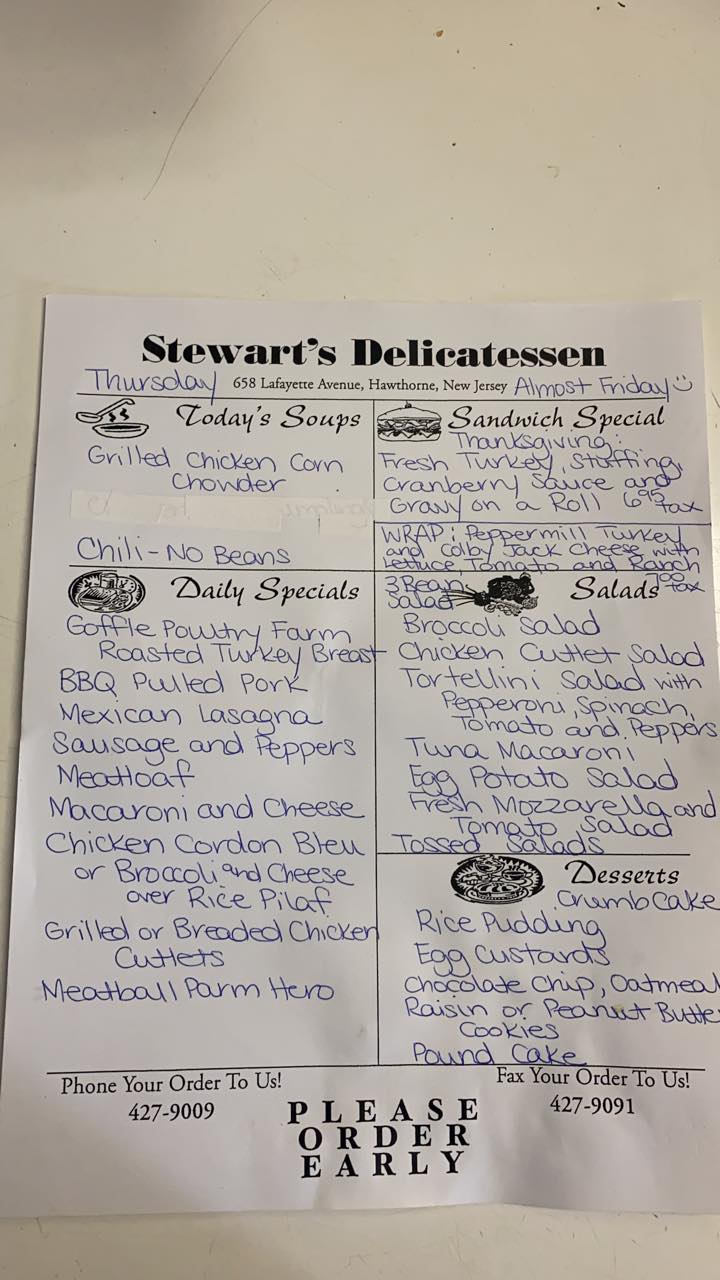 Stewart's Delicatessen
Thursday 658 Lafayette Avenue, Hawthorne, New Jersey Almost Friday
Today's Soups
Grilled Chicken Corn
Chowder
Chili-No Beans
Sandwich Special
Thanksgiving:
Fresh Turkey, Stuffing,
Cranberry Sauce and
Gravy on a Roll 6.95 tax
WRAP: Peppermill Turkey
and Colby Jack Cheese with
Lettuce, Tomato and Ranch
7.00 tax
Daily Specials
Goffle Poultry Farm
Roasted Turkey Breast
BBQ Pulled Pork
Mexican Lasagna
Sausage and Peppers
Meatloaf
Macaroni and Cheese
Chicken Cordon Bleu
or Broccoli and Cheese
over Rice Pilaf
Grilled or Breaded Chicken
Cutlets
Meatball Parm Hero
Salads
3 Bean
Salad
Broccoli Salad
Chicken Cutlet Salad
Tortellini Salad with
Pepperoni, Spinach,
Tomato and Peppers
Tuna Macaroni
Egg Potato Salad
Fresh Mozzarella and
Tomato Salad
Tossed Salads
Desserts
Crumb Cake
Rice Pudding
Egg Custards
Chocolate Chip, Oatmeal
Raisin or Peanut Butte
Cookies
Pound Cake
Phone Your Order To Us!
427-9009
PLEASE
ORDER
EARLY
Fax Your Order To Us!
427-9091